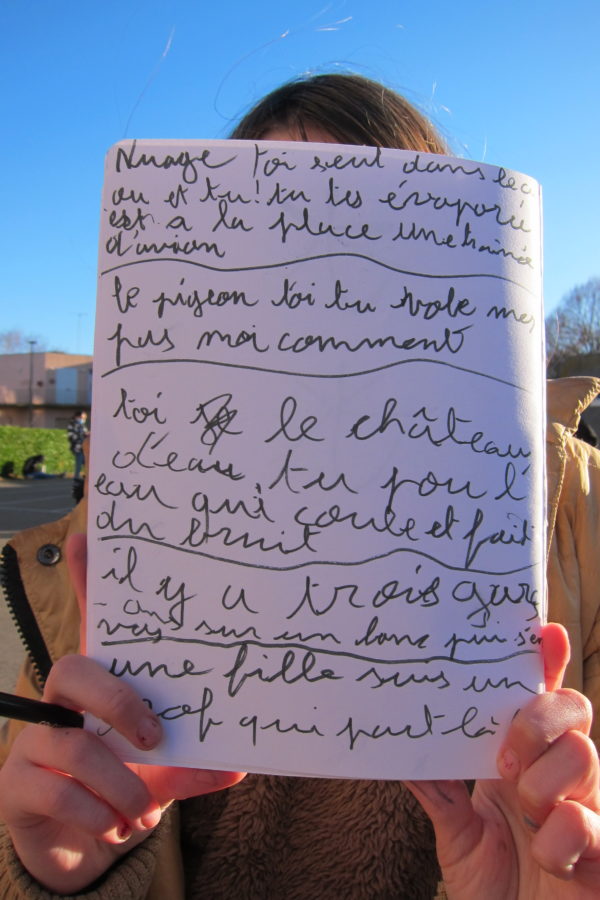 Nuage toi seul dans le c
ou et tu! tu tes évaporée
est a la place une trainée
d'avion
le pigeon toi tu vole mes
pus moi comment
toi le château
d'eau, tu pou l'
eau qui coule et fait
du bruit
il y a trois garç
ons sur un banc pui s'en
vas
une fille suis un
prof qui part là